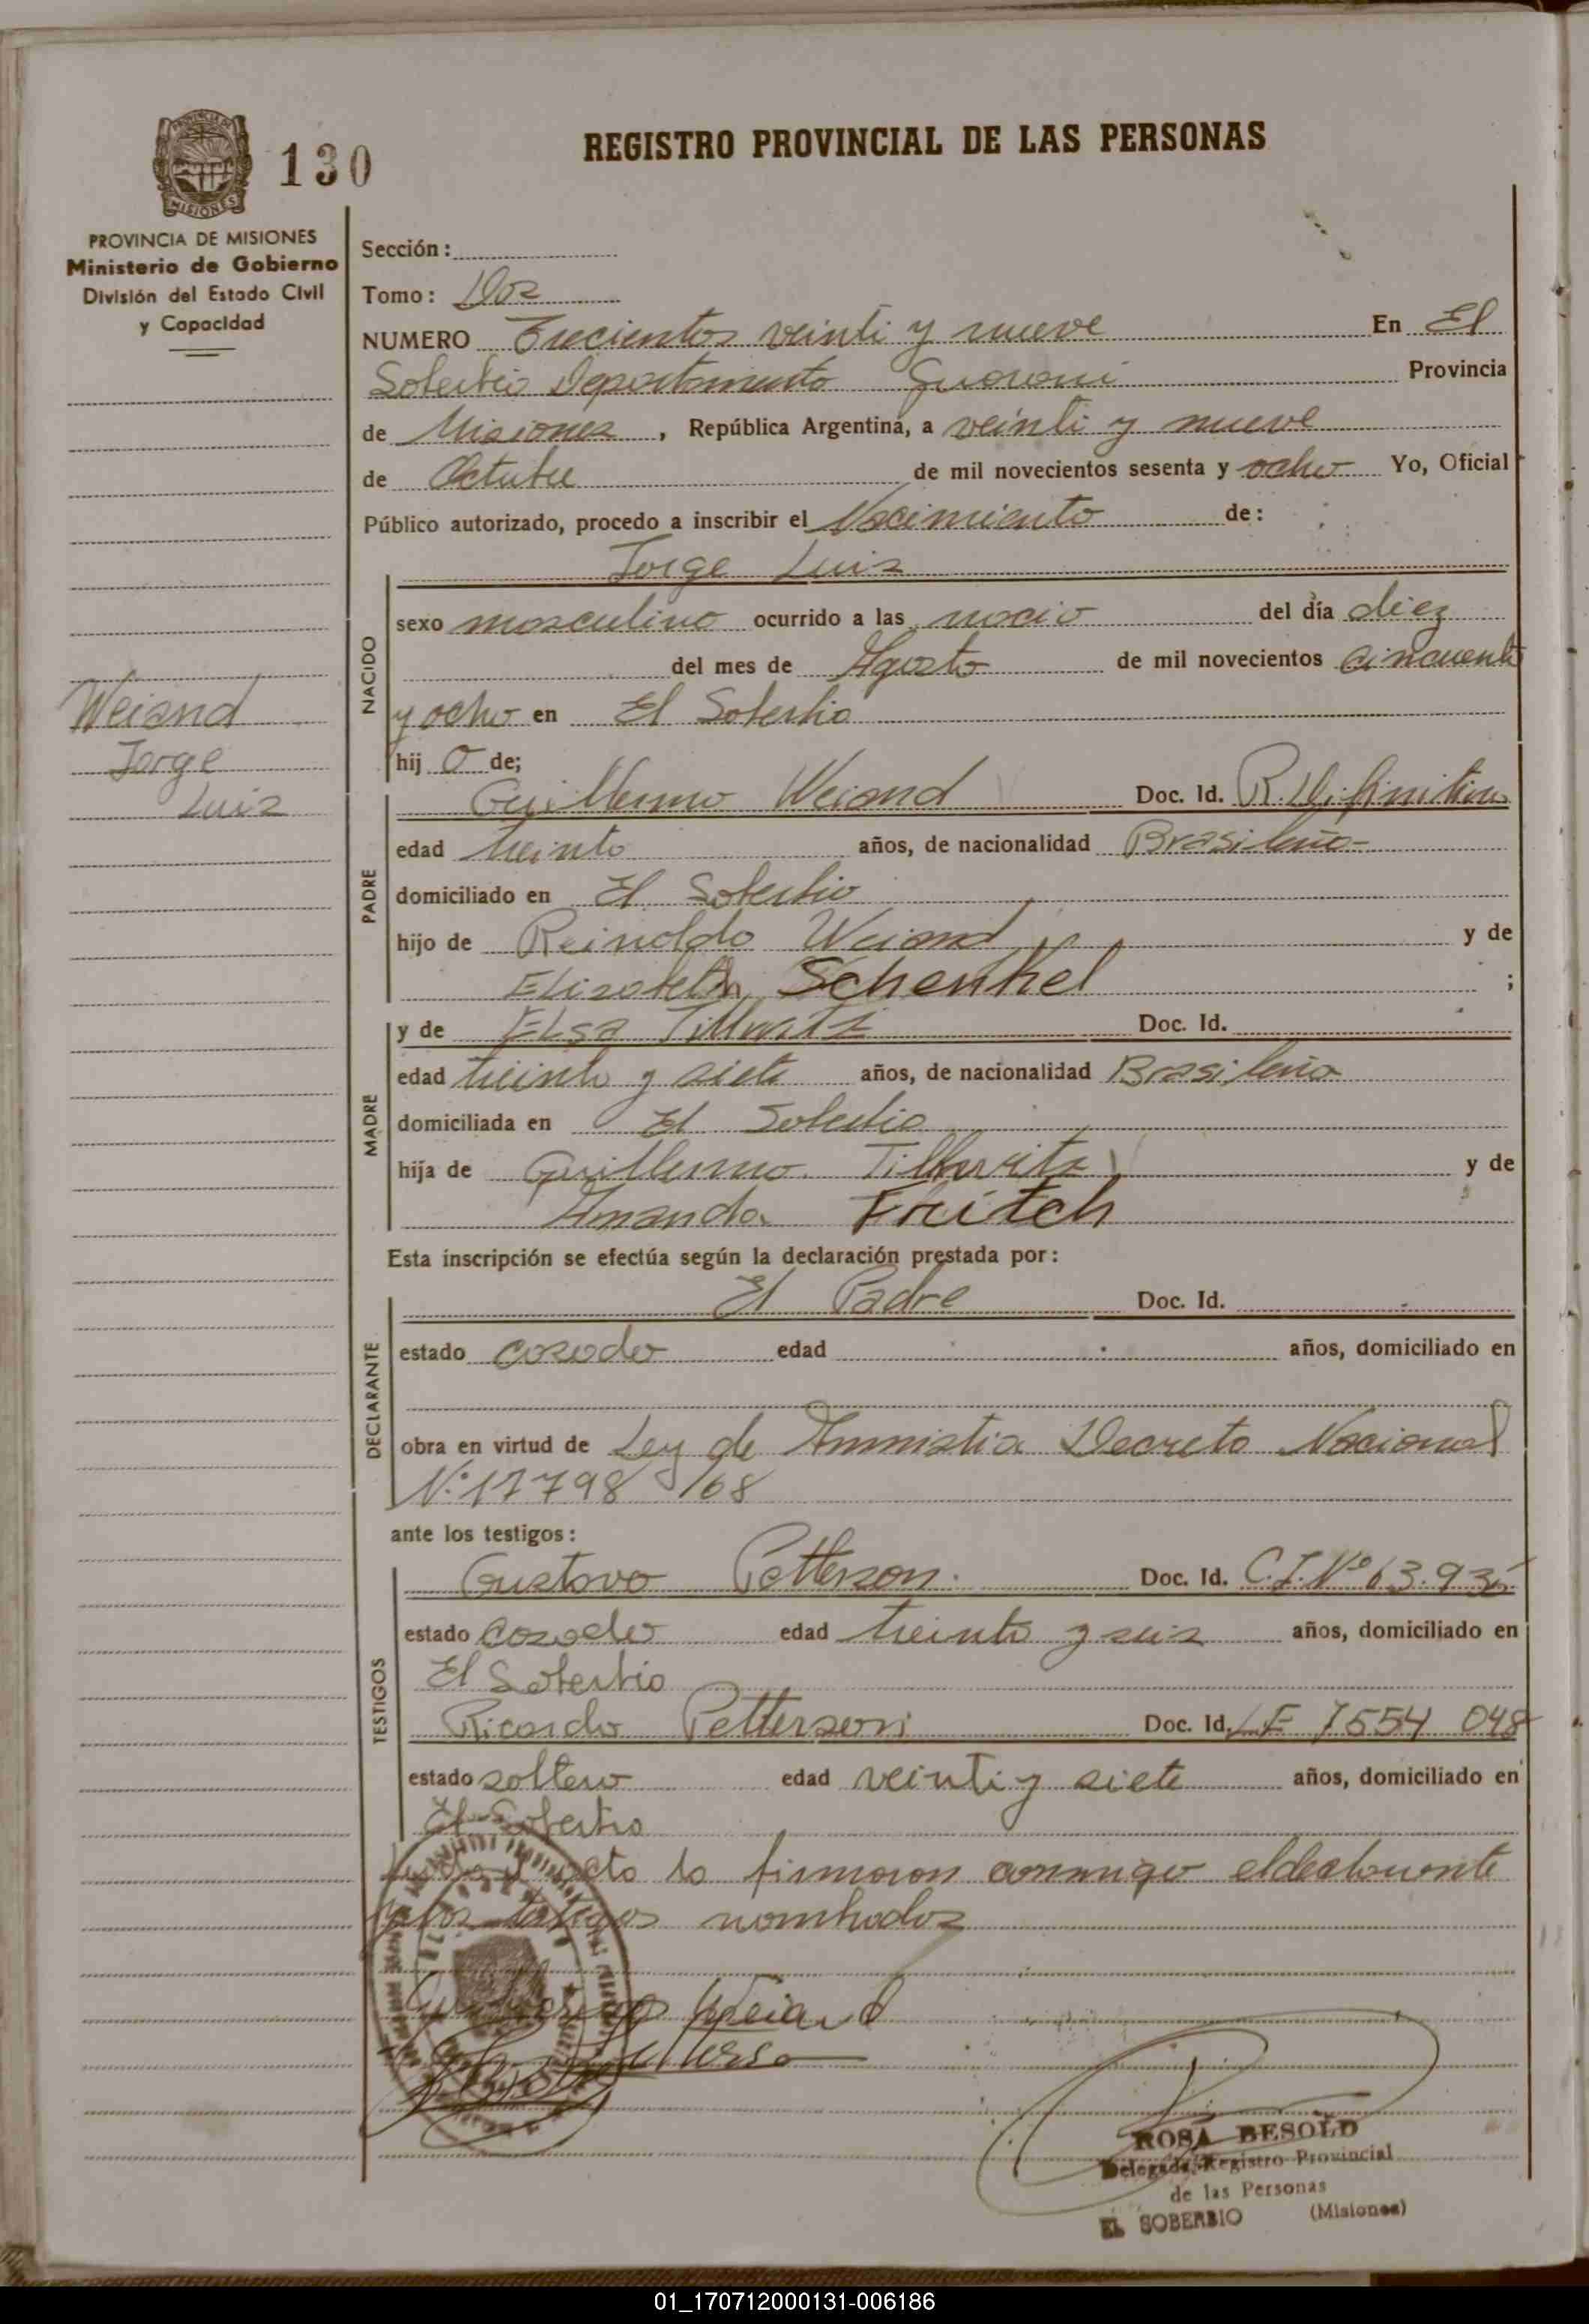 130
REGISTRO PROVINCIAL DE LAS PERSONAS
MISIONES
PROVINCIA DE MISIONES
Ministerio de Gobierno
División del Estado Civil
y Capacidad
Sección:
Tomo: Dos
NUMERO Trecientos veinti y nueve En El
Soberbio Departamento Guarani Provincia
de Misiones, República Argentina, a veinti y nueve
de Octubre de mil novecientos sesenta y ocho Yo, Oficial
Público autorizado, procedo a inscribir el Nacimiento de:
Jorge Luis
NACIDO
sexo masculino ocurrido a las nacio del día diez
del mes de Agosto de mil novecientos cincuenta
y ocho en El Soberbio
hij o de;
Weiand
Jorge
Luis
PADRE
Guillermo Weiand Doc. Id. R. Definitiva
edad treinta años, de nacionalidad Brasileño-
domiciliado en El Soberbio
hijo de Reinoldo Weiand y de
Elizabeth Schenkel ;
MADRE
y de Elsa Doc. Id.
edad treinta y siete años, de nacionalidad Brasileña
domiciliada en El Soberbio
hija de Guillermo y de
Amanda Fritch
Esta inscripción se efectúa según la declaración prestada por:
DECLARANTE
El Padre Doc. Id.
estado casado edad años, domiciliado en
obra en virtud de Ley de Amnistia Decreto Nacional
N:º 17798/68
ante los testigos:
TESTIGOS
Gustavo Petterson. Doc. Id. C.I.Nº 63.935
estado casado edad treinta y seis años, domiciliado en
El Soberbio
Ricardo Petterson Doc. Id. L E 7554 048
estado soltero edad veinti y siete años, domiciliado en
El Soberbio
acta la firmaron conmigo el declarante
y los testigos nombrados
Weiand
ROSA BESOLD
Delegada Registro Provincial
de las Personas
EL SOBERBIO (Misiones)
01_170712000131-006186